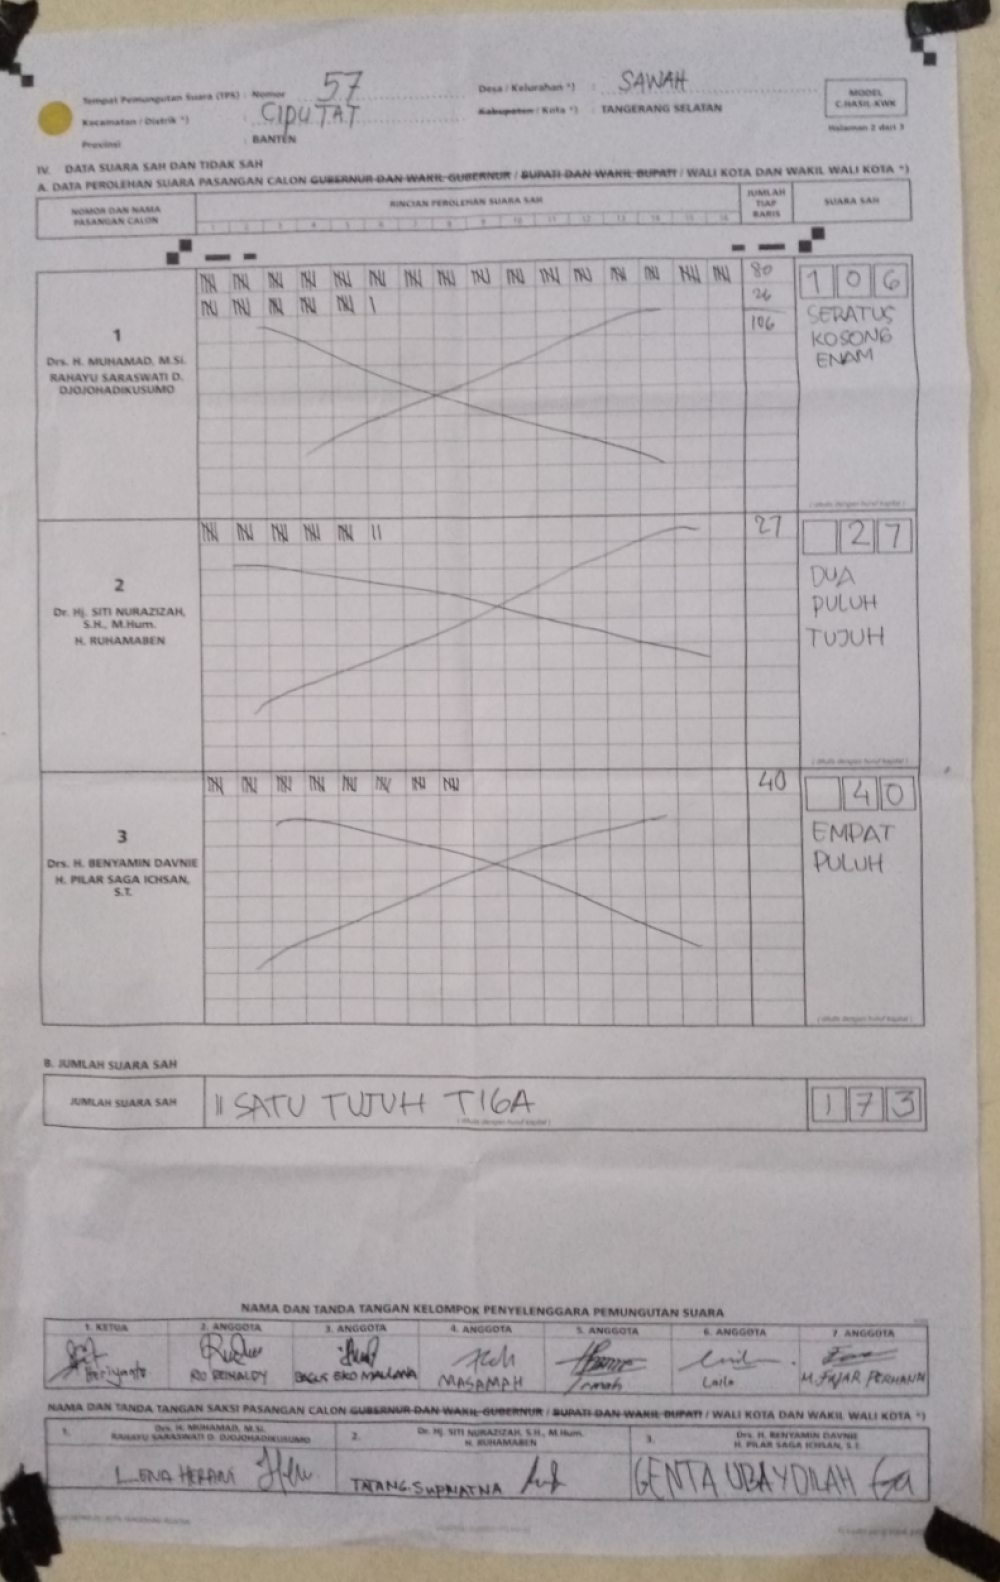 Tempat Pemungutan Suara (TPS) : Nomor 57
Desa / Kelurahan *) : SAWAH
Kecamatan / Distrik *) : CIPUTAT
Kabupaten / Kota *) : TANGERANG SELATAN
Provinsi : BANTEN
MODEL
C.HASIL-KWK
Halaman 2 dari 3
IV. DATA SUARA SAH DAN TIDAK SAH
A. DATA PEROLEHAN SUARA PASANGAN CALON GUBERNUR DAN WAKIL GUBERNUR / BUPATI DAN WAKIL BUPATI / WALI KOTA DAN WAKIL WALI KOTA *)
NOMOR DAN NAMA
PASANGAN CALON
RINCIAN PEROLEHAN SUARA SAH
1 2 3 4 5 6 7 8 9 10 11 12 13 14 15 16
JUMLAH
TIAP
BARIS
SUARA SAH
1
Drs. H. MUHAMAD, M.Si.
RAHAYU SARASWATI D.
DJOJOHADIKUSUMO
80
26
106
1 0 6
SERATUS
KOSONG
ENAM
( ditulis dengan huruf kapital )
2
Dr. Hj. SITI NURAZIZAH,
S.H., M.Hum.
H. RUHAMABEN
27
27
DUA
PULUH
TUJUH
( ditulis dengan huruf kapital )
3
Drs. H. BENYAMIN DAVNIE
H. PILAR SAGA ICHSAN,
S.T.
40
40
EMPAT
PULUH
( ditulis dengan huruf kapital )
B. JUMLAH SUARA SAH
JUMLAH SUARA SAH
SATU TUJUH TIGA
( ditulis dengan huruf kapital )
1 7 3
NAMA DAN TANDA TANGAN KELOMPOK PENYELENGGARA PEMUNGUTAN SUARA
1. KETUA 2. ANGGOTA 3. ANGGOTA 4. ANGGOTA 5. ANGGOTA 6. ANGGOTA 7. ANGGOTA
Beriyanto RIO REINALDY BAGUS EKO MAULANA MASAMAH Irmah Laila M. FAJAR PERMANA
NAMA DAN TANDA TANGAN SAKSI PASANGAN CALON GUBERNUR DAN WAKIL GUBERNUR / BUPATI DAN WAKIL BUPATI / WALI KOTA DAN WAKIL WALI KOTA *)
1. Drs. H. MUHAMAD, M.Si.
RAHAYU SARASWATI D. DJOJOHADIKUSUMO
2. Dr. Hj. SITI NURAZIZAH, S.H., M.Hum.
H. RUHAMABEN
3. Drs. H. BENYAMIN DAVNIE
H. PILAR SAGA ICHSAN, S.T.
LENA HERANI
TATANG. SUPRIATNA
GENTA UBAYDILAH